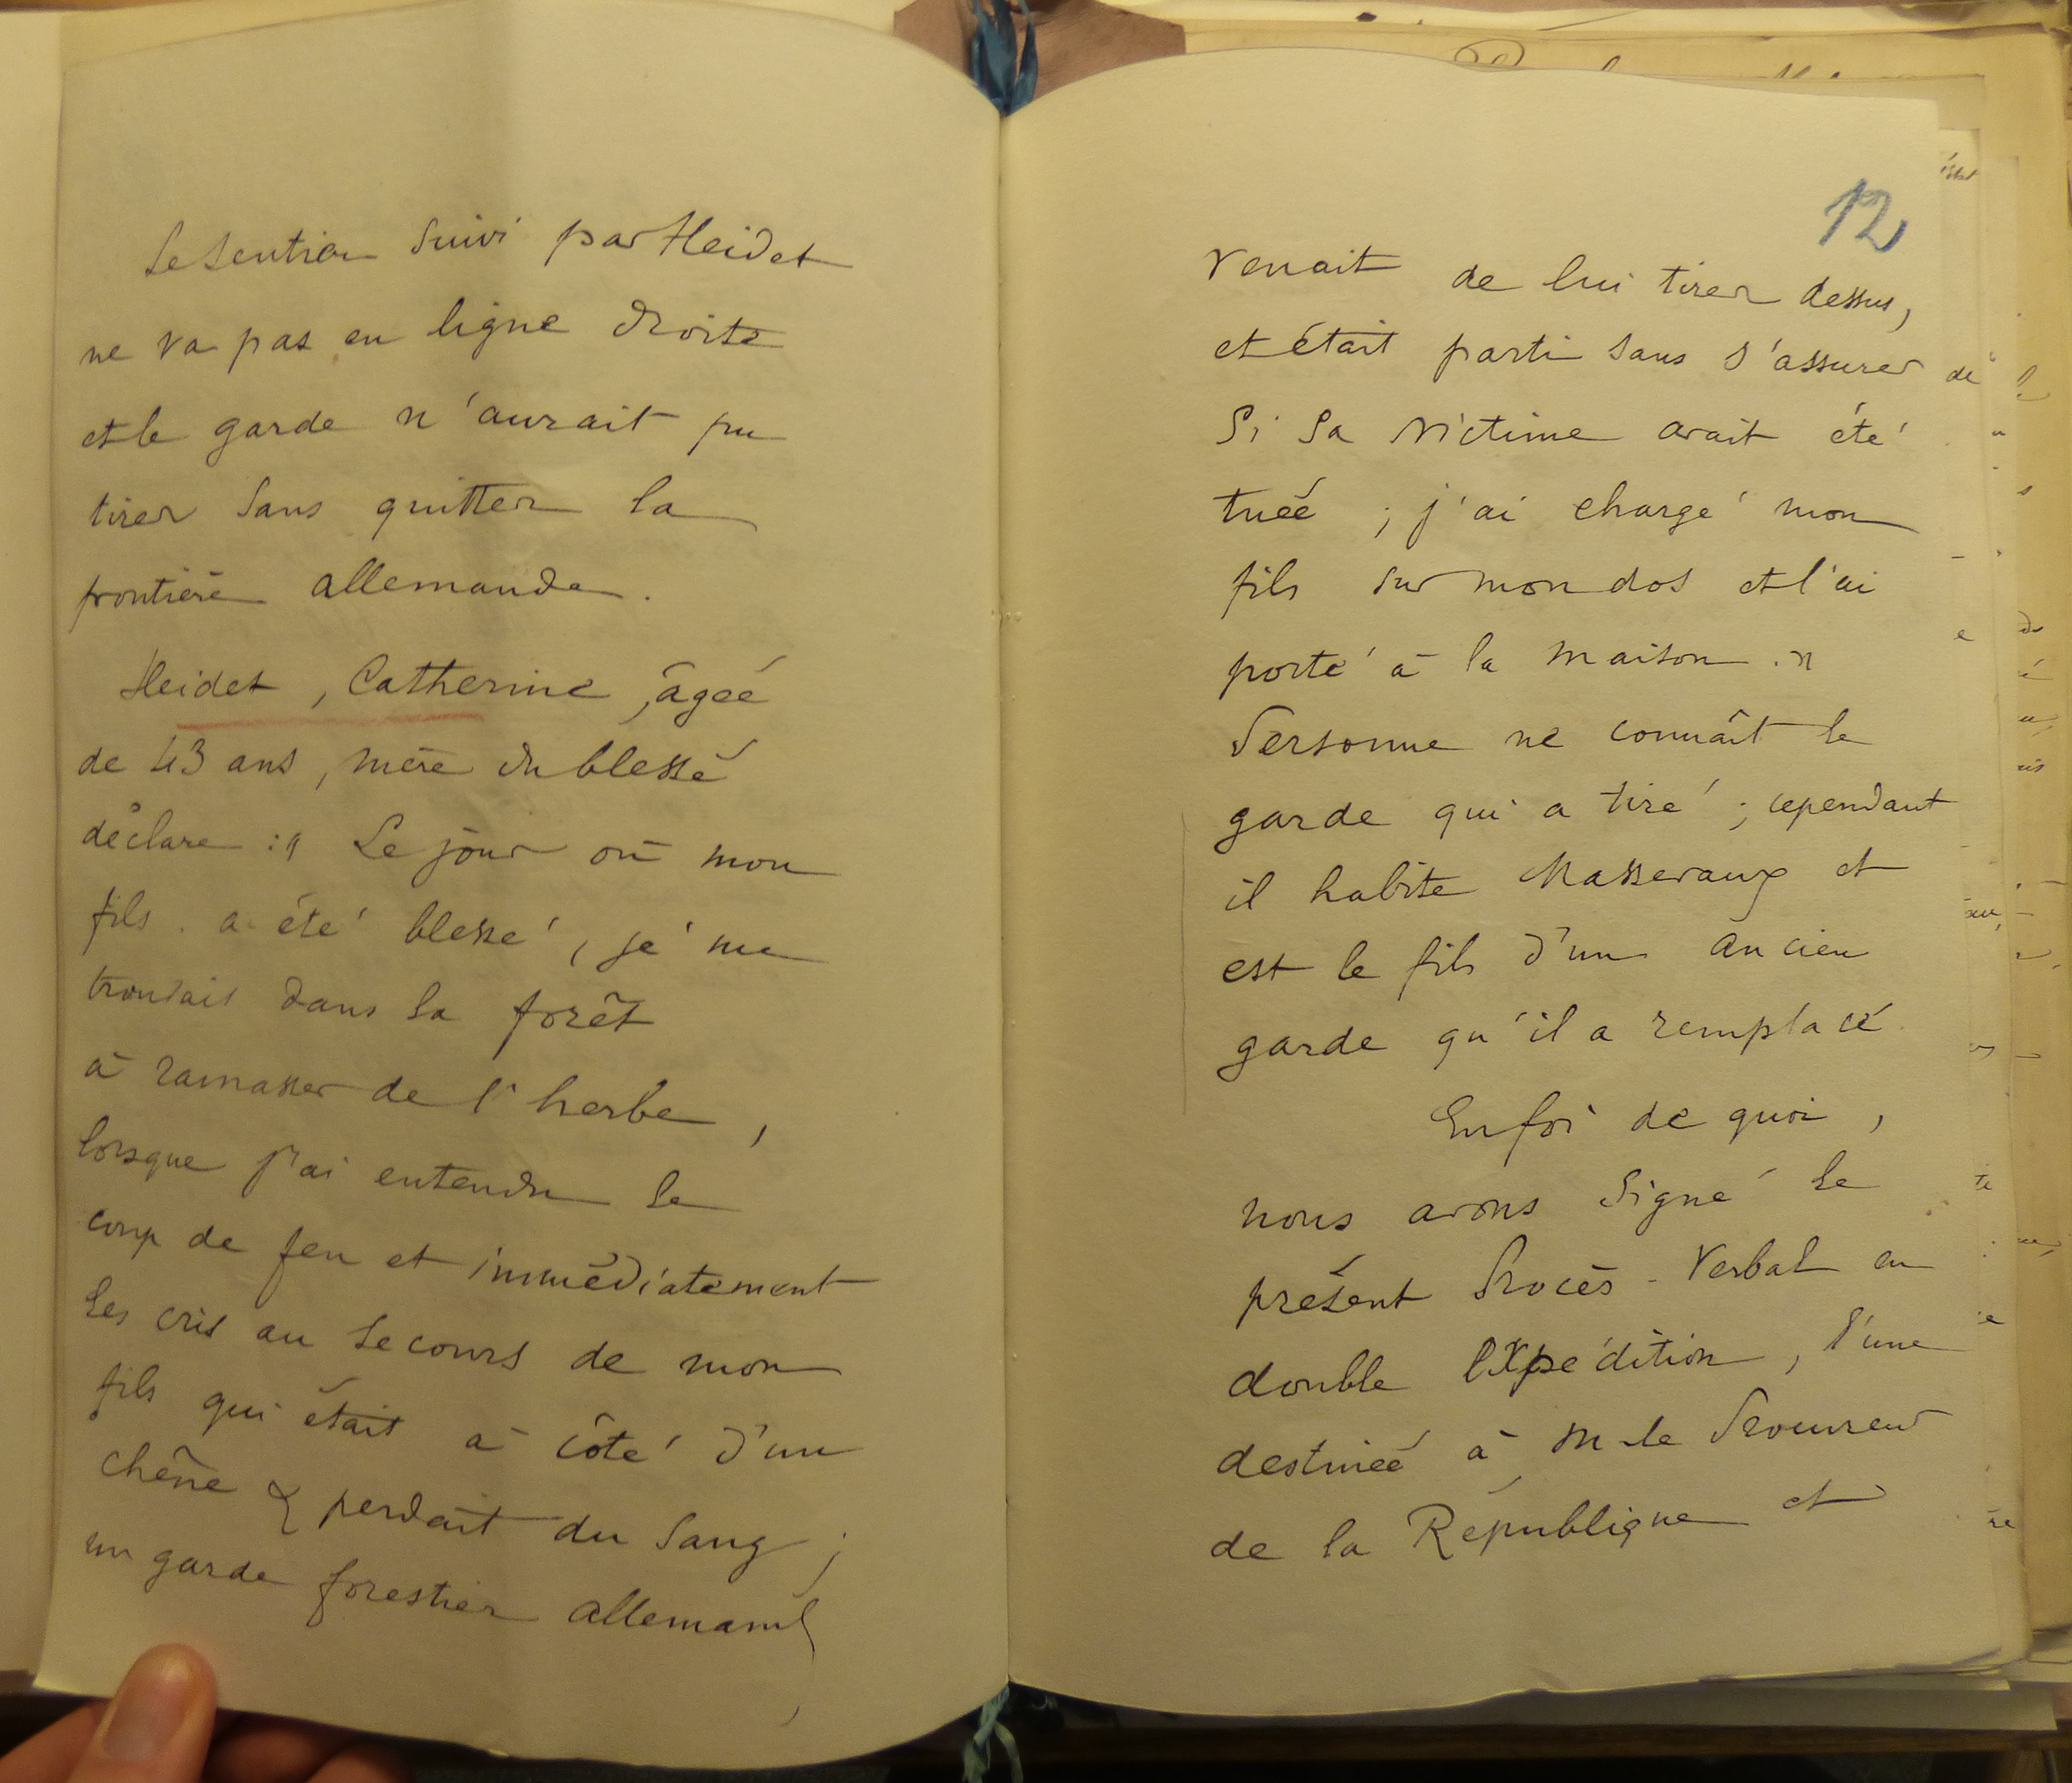 Le sentier suivi par Heidet
ne va pas en ligne droite
et le garde n'aurait pu
tirer sans quitter la
frontière allemande.
Heidet, Catherine, âgée
de 43 ans, mère du blessé
déclare : " Le jour où mon
fils a été blessé, je me
trouvais dans la forêt
à ramasser de l'herbe,
lorsque j'ai entendu le
coup de feu et immédiatement
les cris au secours de mon
fils qui était à côté d'un
chêne & perdait du sang ;
un garde forestier allemand
12
venait de lui tirer dessus,
et était parti sans s'assurer
si sa victime avait été
tuée ; j'ai chargé mon
fils sur mon dos et l'ai
porté à la maison. "
Personne ne connaît le
garde qui a tiré ; cependant
il habite Massevaux et
est le fils d'un ancien
garde qu'il a remplacé
En foi de quoi,
nous avons signé le
présent Procès-Verbal en
double expédition, l'une
destinée à M. le Procureur
de la République et